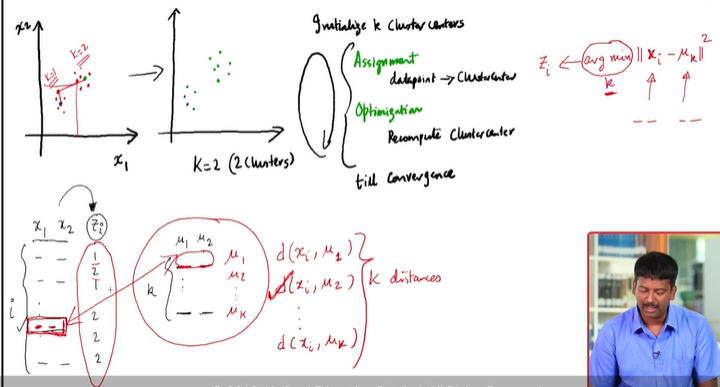 x2
k=1
k=2
x1
K=2 (2 Clusters)
Initialize k Cluster centers
Assignment
datapoint → Clustercenter
Optimization
Recompute Clustercenter
till Convergence
zi ← arg min ‖xi - μk‖²
k
x1 x2 zi
1
2
1
2
2
2
i
μ1 μ2
k
μ1
μ2
μK
d(xi, μ1)
d(xi, μ2)
d(xi, μK)
K distances